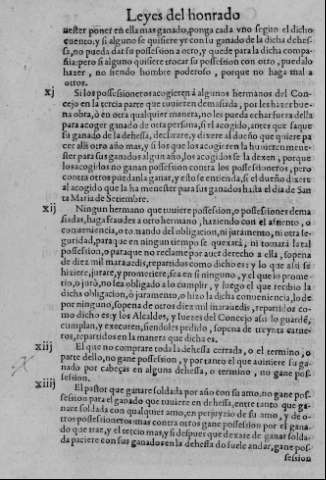 Leyes del honrado
uester poner en ella mas ganado, ponga cada vno segun el dicho
cuento: y si alguno se quisiere yr con su ganado de la dicha dehes-
sa, no pueda dar su possession a otro, y quede para la dicha compa-
ñia: pero si alguno quisiere trocar su possession con otro, puedalo
hazer, no siendo hombre poderoso, porque no haga mal a
otros.
xj Si los possessioneros acogieren á algunos hermanos del Con-
cejo en la tercia parte que tuuieren demasiada, por les hazer bue-
na obra, ò en otra qualquier manera, no les pueda echar fuera della
para acoger ganado de otra persona, si el acogido, antes que saque
su ganado de la dehessa, declarare, y dixere al dueño que quiere pa
cer alli otro año mas, y si los que los acogieren la huuieren menes-
ter para sus ganados algun año, los acogidos se la dexen, porque
los acogidos no ganan possession contra los possessioneros, pero
contra otros puedanla ganar, y esto se entienda, si el dueño dixere
al acogido que la ha menester para sus ganados hasta el dia de San
ta Maria de Setiembre.
xij Ningun hermano que tuuiere possession, o possessiones dema
siadas, haga fraude a otro hermano, haziendo con el assiento, o
conueniencia, o tomando del obligacion, ni juramento, ni otra se-
guridad, para que en ningun tiempo se quexará, ni tomará la tal
possession, o para que no reclame por auer derecho a ella, so pena
de diez mil marauedis, repartidos como dicho es: y lo que assi se
hiziere, jurare, y prometiere, sea en si ninguno, y el que lo prome-
tio, o juró, no sea obligado a lo cumplir, y luego el que recibio la
dicha obligacion, o juramento, o hizo la dicha conueniencia, lo de
por ninguno, so pena de otros diez mil marauedis, repartidos co-
mo dicho es: y los Alcaldes, y Iuezes del Concejo assi lo guardē,
cumplan, y executen, siendoles pedido, so pena de treynta carne-
ros, repartidos en la manera que dicha es.
xiij El que no comprare toda la dehessa cerrada, o el termino, o
parte dello, no gane possession, y por tanto el que auiniere su ga-
nado por cabeças en alguna dehessa, o termino, no gane pos-
session.
xiiij El pastor que ganare soldada por año con su amo, no gane pos-
session para el ganado que tuuiere en dehessa, entre tanto que ga-
nare soldada con qualquier amo, en perjuyzio de su amo, y de o-
tros possessioneros: mas contra otros gane possession por el gana-
do que trae, y el tercio mas, y si despues que dexare de ganar solda-
da paciere con sus ganados en la dehessa do suele andar, gane pos-
session